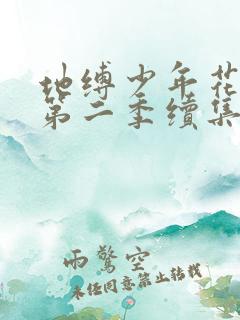 地缚少年花
第二季续集
雨驚空
未经同意禁止转载